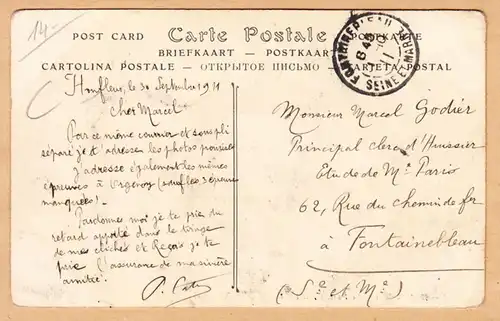 14-
POST CARD Carte Postale POSTKARTE
BRIEFKAART - POSTKAART
CARTOLINA POSTALE - ОТКРЫТОЕ ПИСЬМО - CARTETA POSTAL
FONTAINEBLEAU
SEINE ET MARNE
Honfleur, le 30 Septembre 1911
Cher Marcel
Par ce même courrier et sous pli
séparé je t'adresse les photos promises
j'adresse également les mêmes
épreuves à (sauf les 3 épreuves
manquées).
Pardonne moi je te prie du
retard apporté dans le tirage
de mes clichés et Reçois je te
prie l'assurance de ma sincère
amitié.
P.
Monsieur Marcel Godier
Principal clerc d'Huissier
Etude de Me Paris
62, Rue du chemin de fer
à Fontainebleau
(Se et Me)